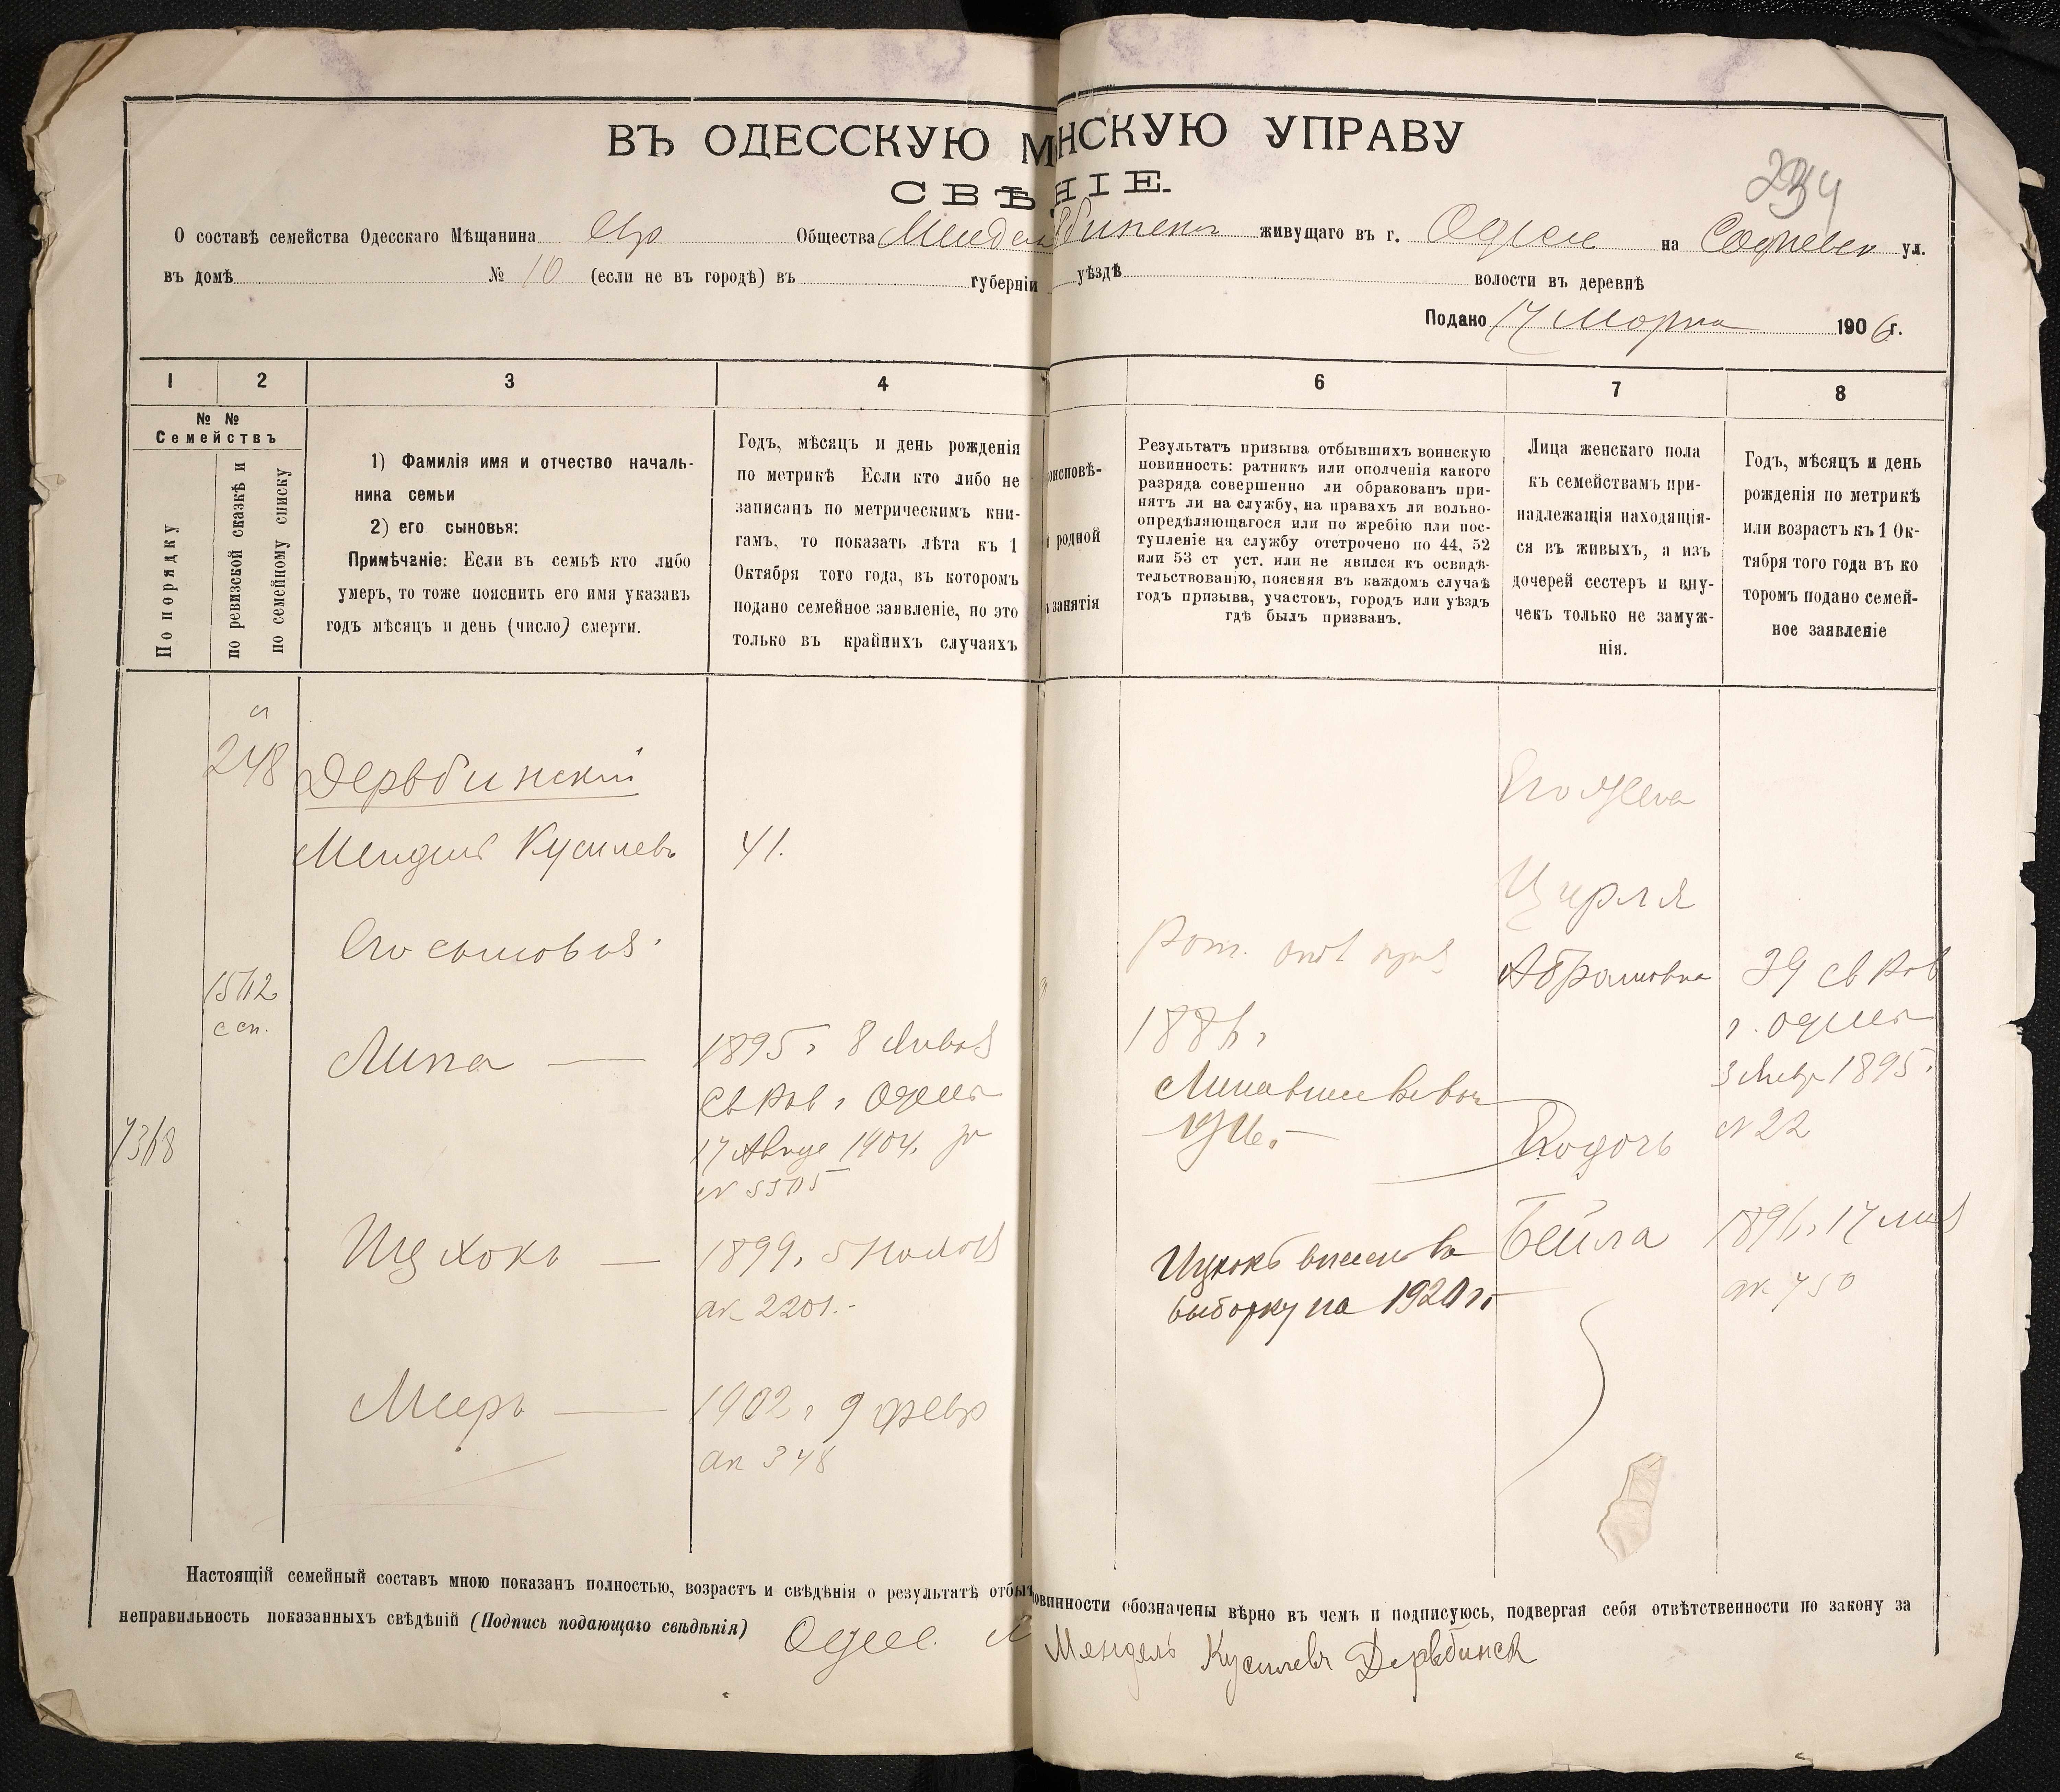 ВЪ ОДЕССКУЮ М НСКУЮ УПРАВУ
СВѢ НІЕ.
234
О составѣ семейства Одесскаго Мѣщанина Евр Общества Мендел бински живущаго въ г. Одессе на Софиевск ул.
въ домѣ № 10 (если не въ городѣ) въ губерніи уѣздѣ волости въ деревнѣ
Подано 17 Марта 1906 г.
1 2 3 4 6 7 8
№ № Семействъ
По порядку
по ревизской сказкѣ и
по семейному списку
1) Фамилія имя и отчество началь-
ника семьи
2) его сыновья:
Примѣчаніе: Если въ семьѣ кто либо
умеръ, то тоже пояснить его имя указавъ
годъ мѣсяцъ и день (число) смерти.
Годъ, мѣсяцъ и день рожденія
по метрикѣ Если кто либо не
записанъ по метрическимъ кни-
гамъ, то показать лѣта къ 1
Октября того года, въ которомъ
подано семейное заявленіе, но это
только въ крайнихъ случаяхъ
оисповѣ-
родной
занятія
Результатъ призыва отбывшихъ воинскую
повинность: ратникъ или ополченія какого
разряда совершенно ли обракованъ при-
нятъ ли на службу, на правахъ ли вольно-
опредѣляющагося или по жребію или пос-
тупленіе на службу отсрочено по 44, 52
или 53 ст уст. или не явился къ освидѣ-
тельствованію, поясняя въ каждомъ случаѣ
годъ призыва, участокъ, городъ или уѣздъ
гдѣ былъ призванъ.
Лица женскаго пола
къ семействамъ при-
надлежащія находящія-
ся въ живыхъ, а изъ
дочерей сестеръ и вну-
чекъ только не замуж-
нія.
Годъ, мѣсяцъ и день
рожденія по метрикѣ
или возрастъ къ 1 Ок-
тября того года въ ко
торомъ подано семей-
ное заявленіе
248
Дервбинскій
Мендель Кусилевъ
41.
Его сыновья:
1512
с сп.
Липа
1895 г 8 Января
Св Рав г Одессы
17 Авгус 1904 за
№ 5505
7368
Ицхокъ
1899 г
ак 2201.
Мееръ
1902 г 9 февр
ак 348
Рат.
1886 г
Липа внесенъ въ
Ицхокъ внесенъ въ
выборку на 1920 г.
Его Жена
Цирля
Абрамовна
39 св Рав
г. Одессы
3 Янвр 1895
№ 22
Его дочь
Бейла
1896 г 17
ак 750
Настоящій семейный составъ мною показанъ полностью, возрастъ и свѣдѣнія о результатѣ отбы овинности обозначены вѣрно въ чемъ и подписуюсь, подвергая себя отвѣтственности по закону за
неправильность показанныхъ свѣдѣній (Подпись подающаго свѣдѣнія) Одесс. М Мендель Кусилевъ Дервбинск